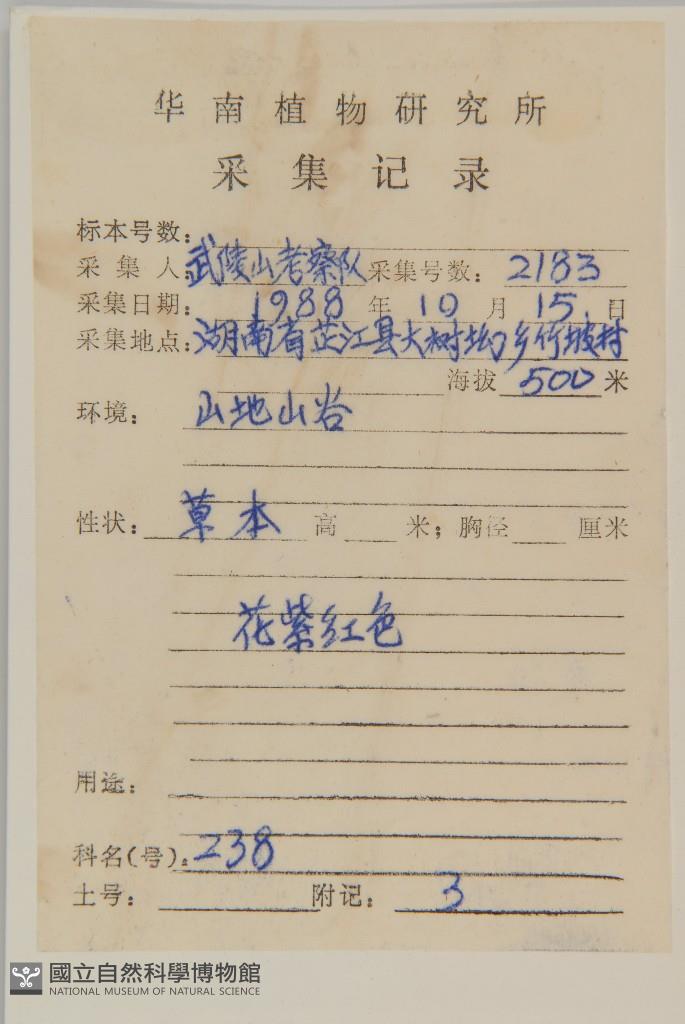 华南植物研究所
采集记录
标本号数：
采集人：武陵山考察队 采集号数：2183
采集日期：1988年10月15日
采集地点：湖南省芷江县大树坳乡竹坡村
海拔 500 米
环境：山地山谷
性状：草本 高 米；胸径 厘米
花紫红色
用途：
科名(号)：238
土号： 附记：3
國立自然科學博物館
NATIONAL MUSEUM OF NATURAL SCIENCE